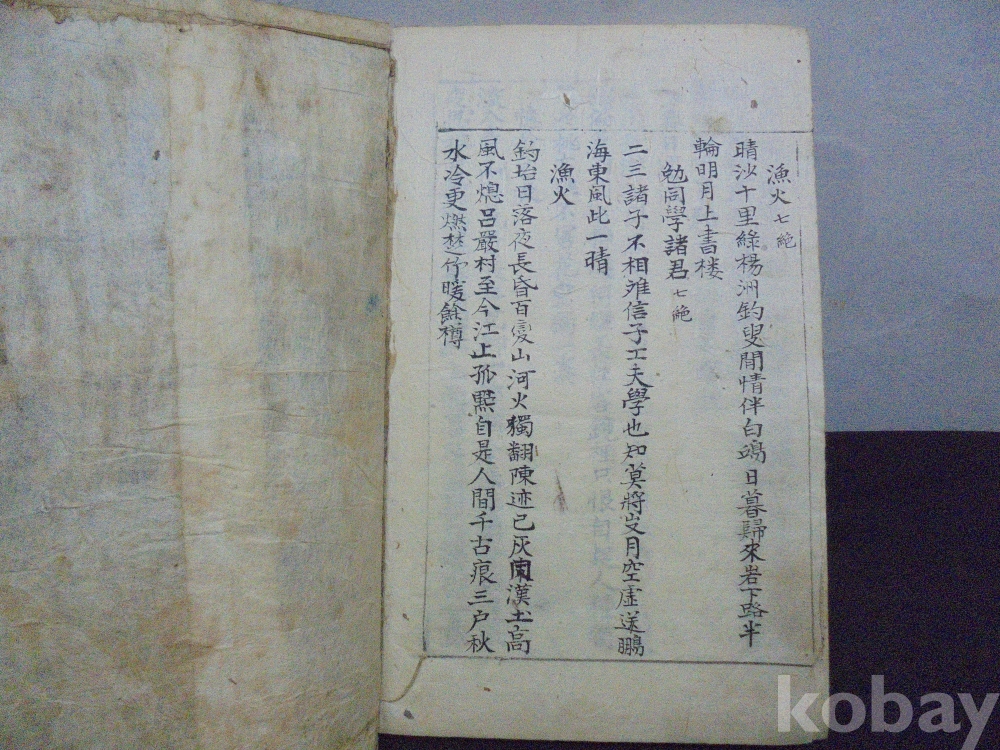 漁火 七絶
晴沙十里綠楊洲釣叟閒情伴白鷗日暮歸來岩下路半
輪明月上書楼
勉同學諸君 七絶
二三諸子不相難信子工夫學也知莫將歲月空虛送鵬
海東風此一晴
漁火
釣坮日落夜長昏百變山河火獨翻陳迹已灰南漢土高
風不熄呂嚴村至今江上孤㸃自是人間千古痕三户秋
水冷更燃楚竹暖餘樽
kobay